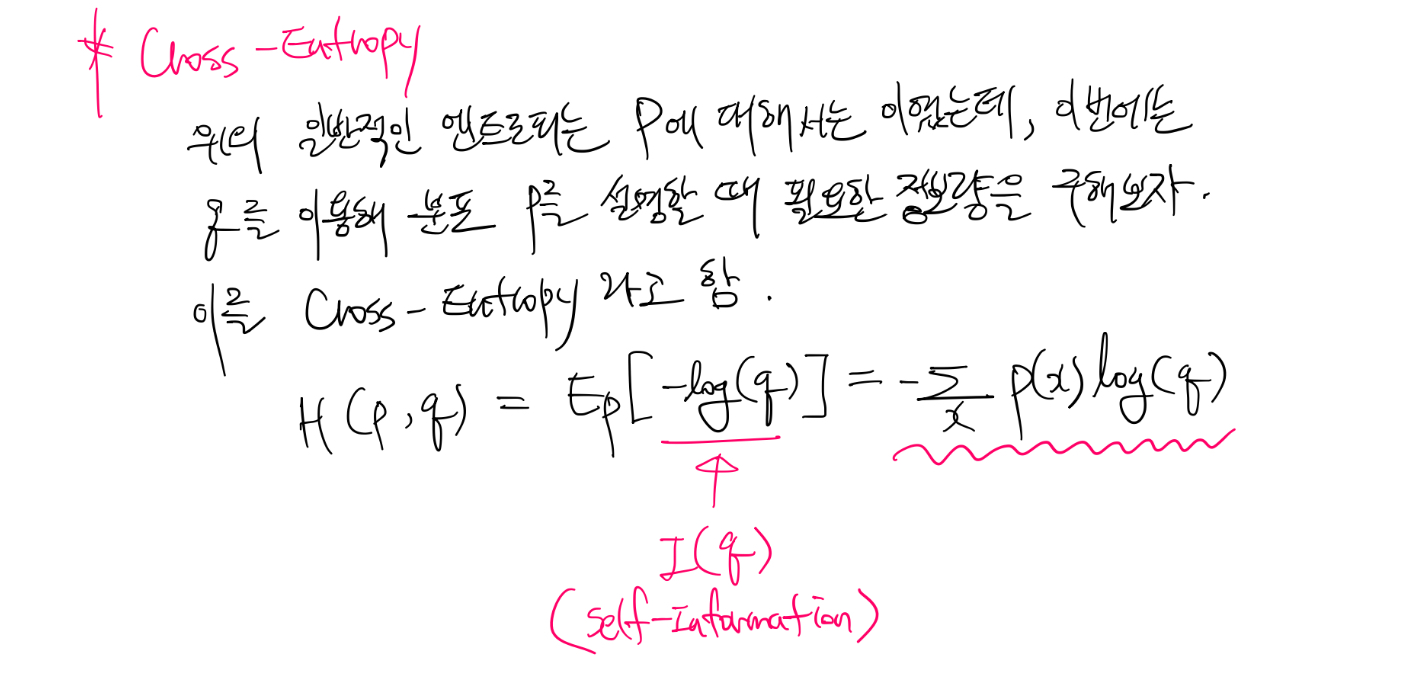 * Cross-Entropy
위의 일반적인 엔트로피는 P에 대해서는 이었는데, 이번에는
q를 이용해 분포 P를 설명할 때 필요한 정보량을 구해보자.
이를 Cross-Entropy 라고 함.
H(p,q) = Ep[-log(q)] = -∑x p(x)log(q)
I(q)
(self-Information)